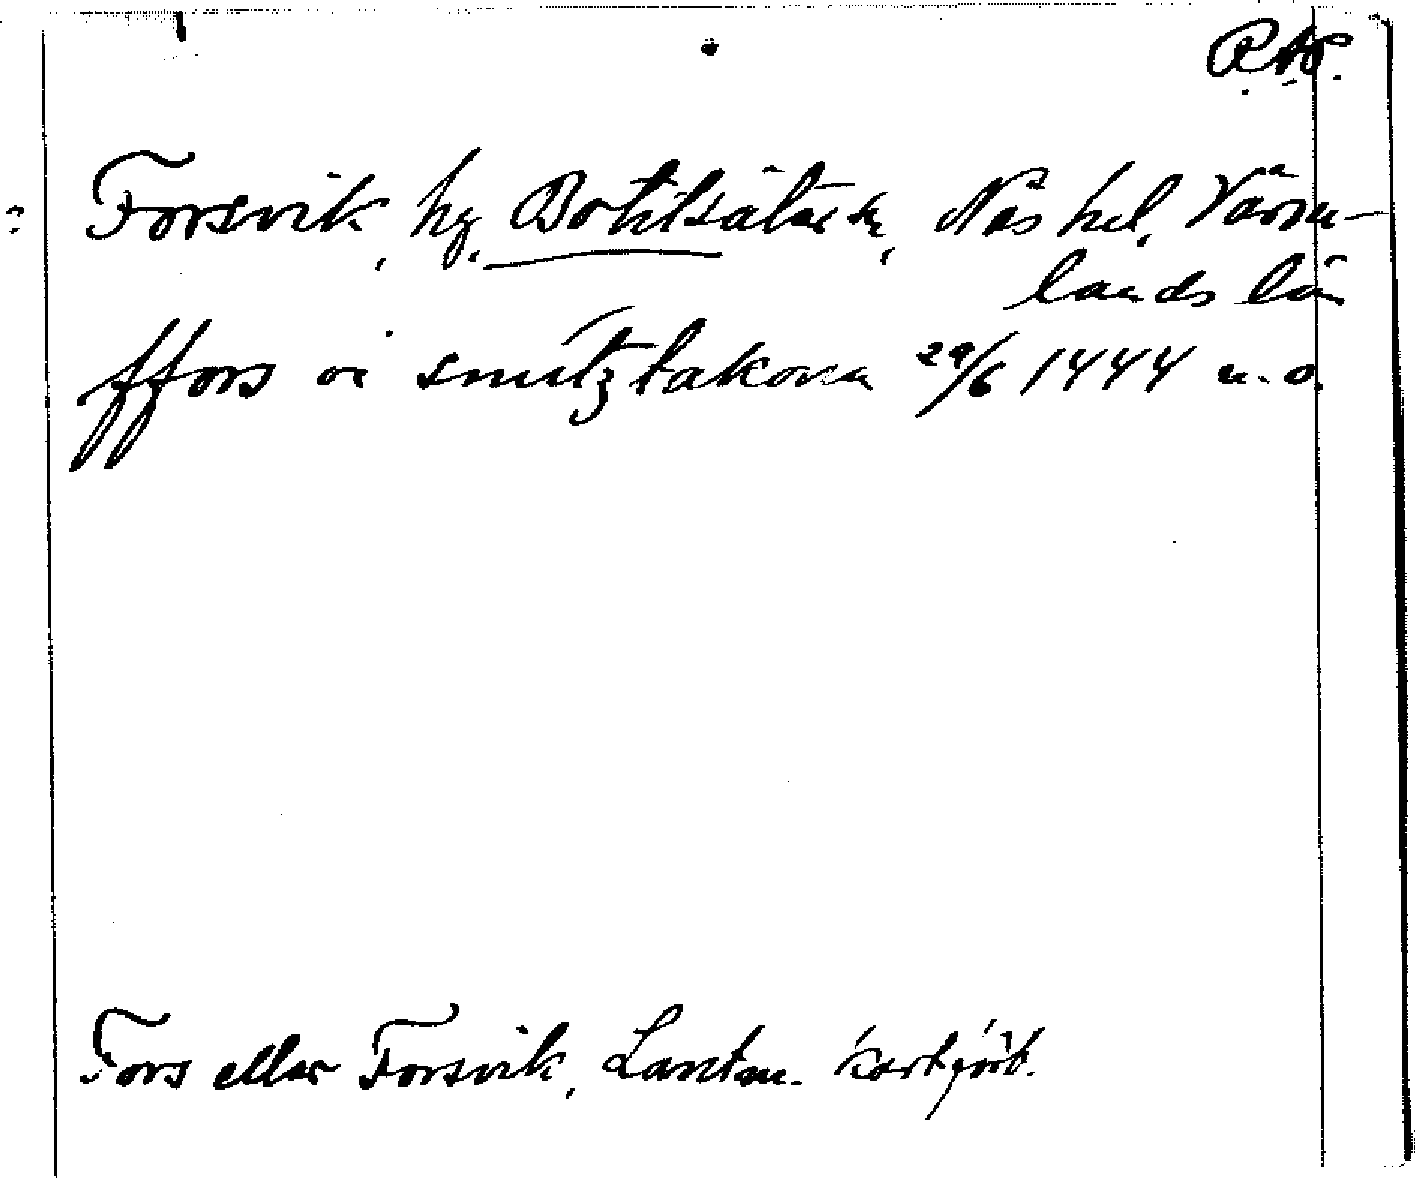 RAP.
Forsvik, hg. Botilsäters sn, Näs hd, Värm-
lands län
ffors i smitztakona 29/6 1444 u. o.
Fors eller Forsvik, Lantm. kartfört.